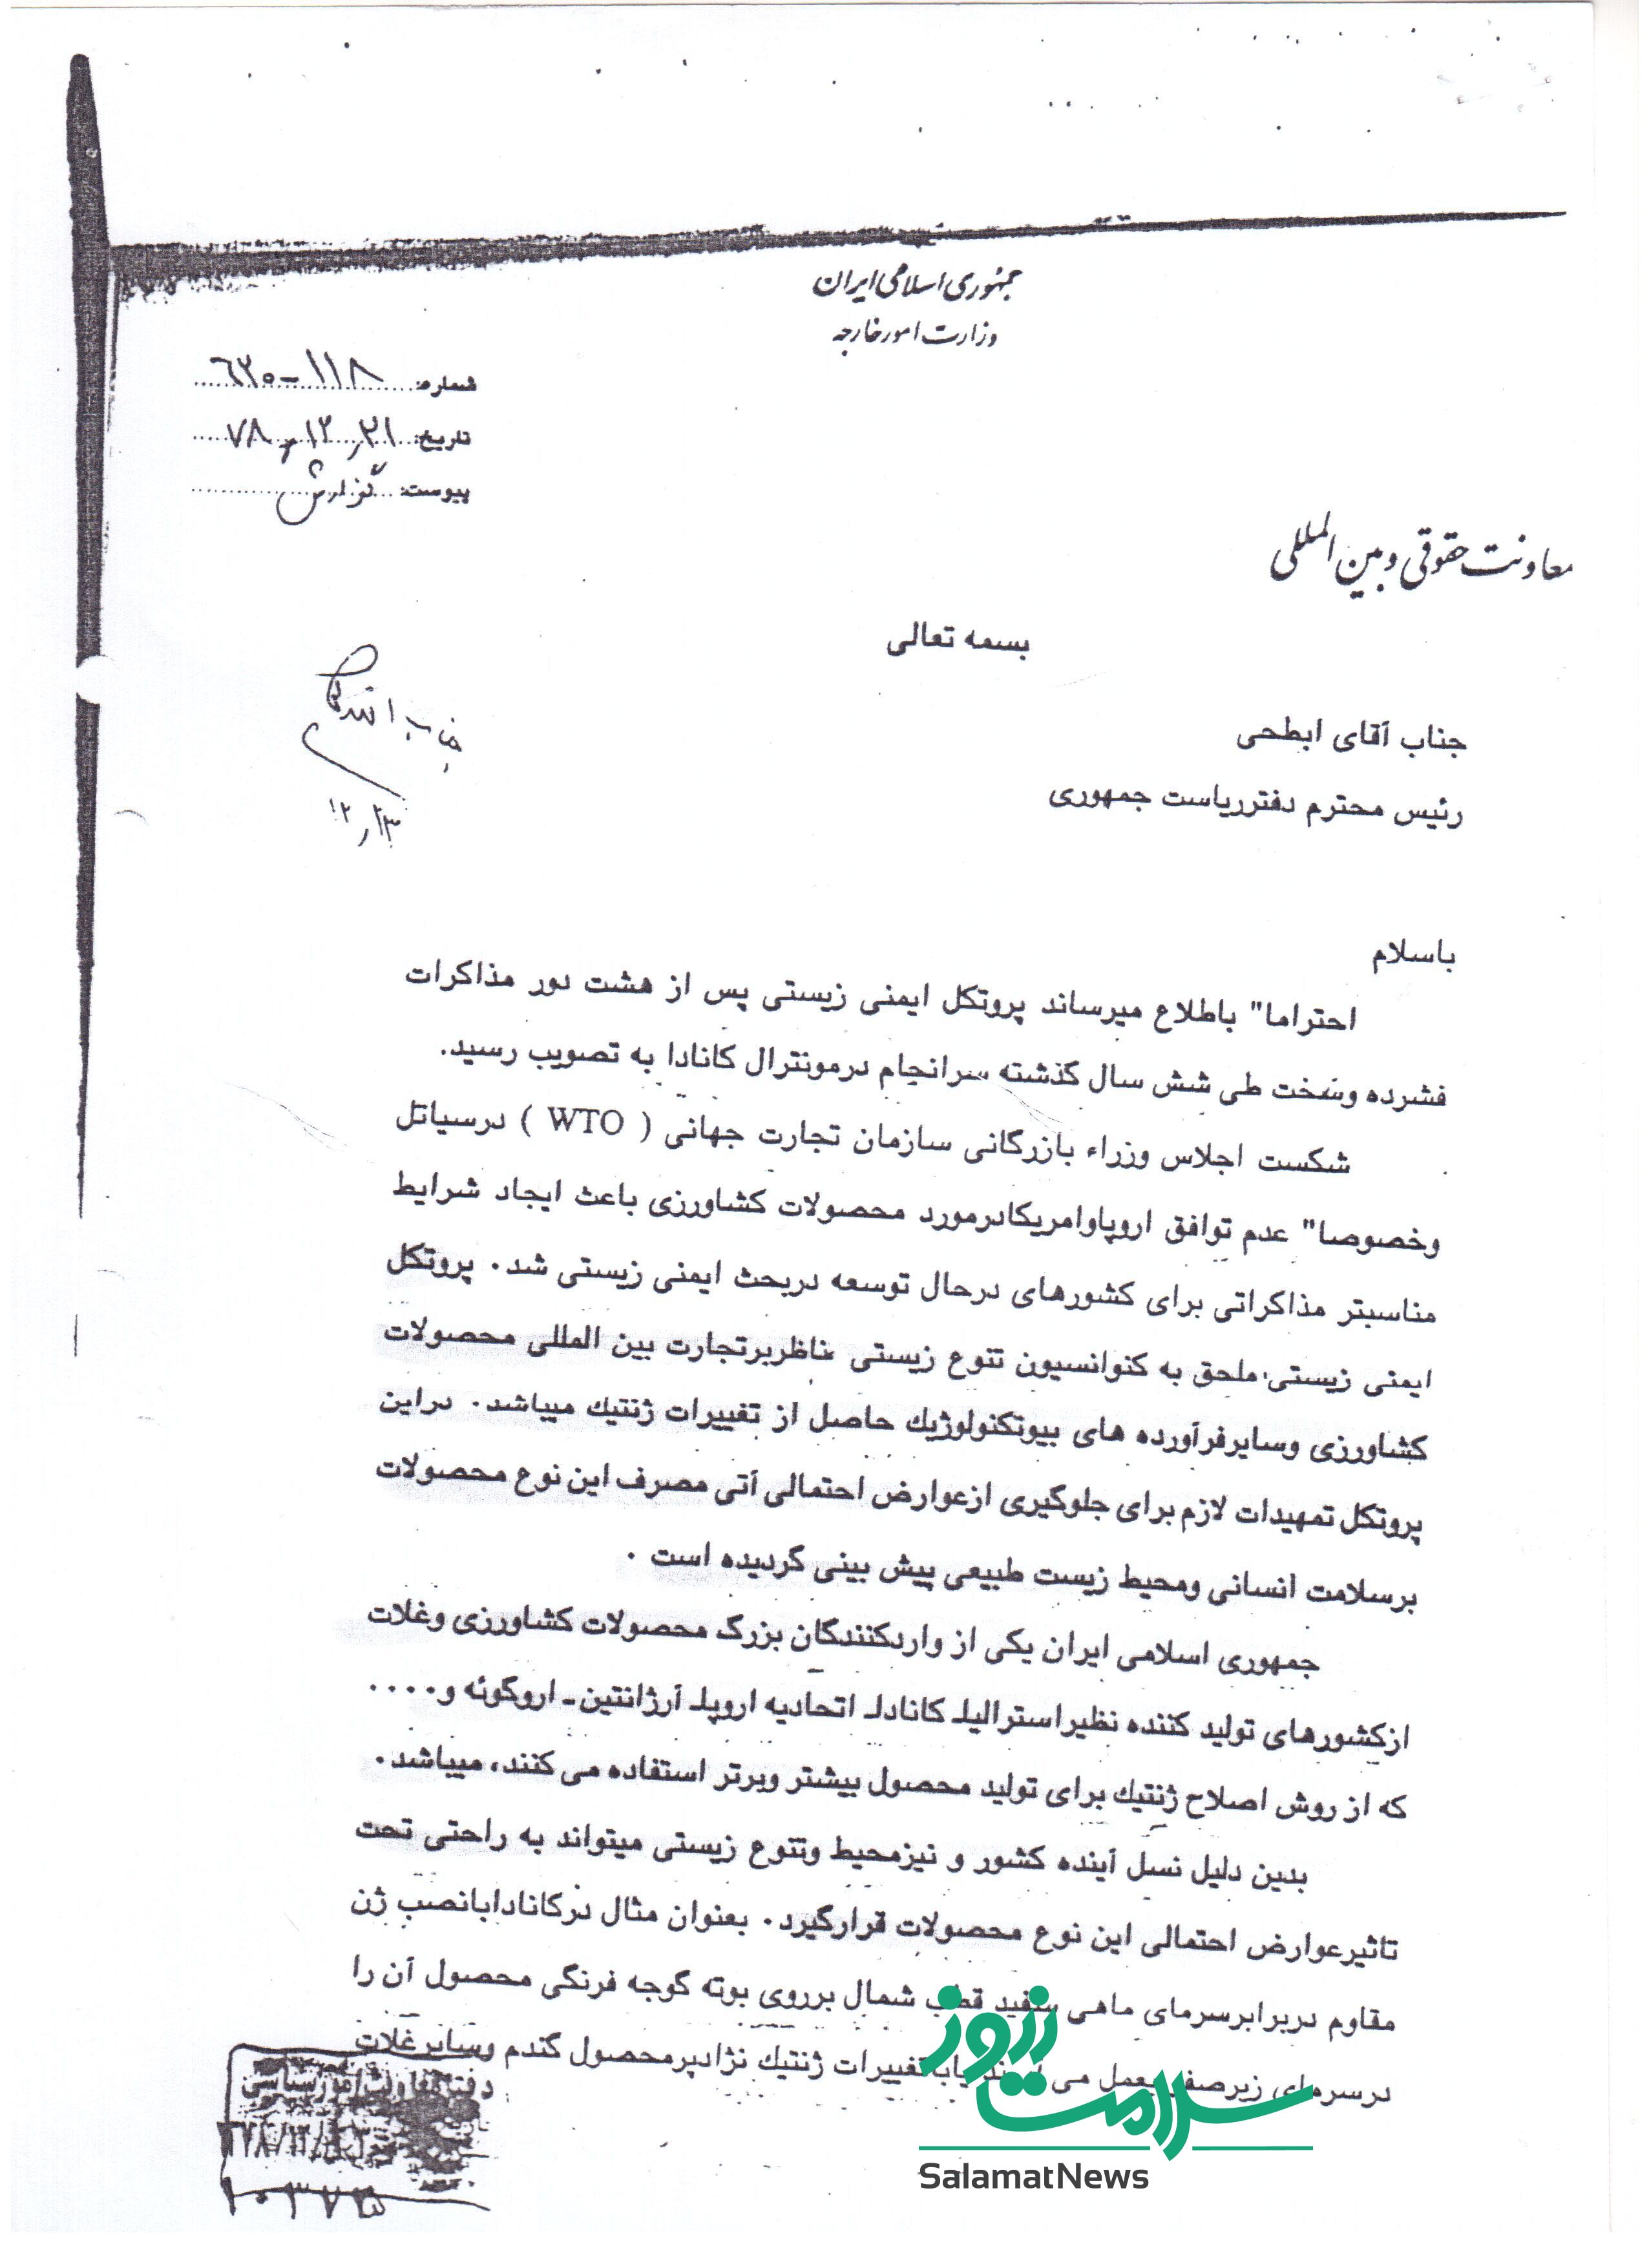 جمهوری اسلامی ایران
وزارت امورخارجه
شماره: ۶۳۰-۱۱۸
تاریخ: ۷۸،۱۲،۲۱
پیوست: گزارش
معاونت حقوقی و بین المللی
بسمه تعالی
جناب
۱۲،۲۳
جناب آقای ابطحی
رئیس محترم دفترریاست جمهوری
باسلام
احتراما" باطلاع میرساند پروتکل ایمنی زیستی پس از هشت دور مذاکرات
فشرده وسخت طی شش سال گذشته سرانجام درمونترال کانادا به تصویب رسید.
شکست اجلاس وزراء بازرگانی سازمان تجارت جهانی ( WTO ) درسیاتل
وخصوصا" عدم توافق اروپاوامریکادرمورد محصولات کشاورزی باعث ایجاد شرایط
مناسبتر مذاکراتی برای کشورهای درحال توسعه دربحث ایمنی زیستی شد. پروتکل
ایمنی زیستی ملحق به کنوانسیون تنوع زیستی ناظربرتجارت بین المللی محصولات
کشاورزی وسایرفرآورده های بیوتکنولوژیك حاصل از تغییرات ژنتیك میباشد. دراین
پروتکل تمهیدات لازم برای جلوگیری ازعوارض احتمالی آتی مصرف این نوع محصولات
برسلامت انسانی ومحیط زیست طبیعی پیش بینی گردیده است .
جمهوری اسلامی ایران یکی از واردکنندگان بزرگ محصولات کشاورزی وغلات
ازکشورهای تولید کننده نظیراسترالیاـ کاناداـ اتحادیه اروپاـ آرژانتین ـ اروگوئه و....
که از روش اصلاح ژنتیك برای تولید محصول بیشتر وبرتر استفاده می کنند، میباشد.
بدین دلیل نسل آینده کشور و نیزمحیط وتنوع زیستی میتواند به راحتی تحت
تاثیرعوارض احتمالی این نوع محصولات قرارگیرد. بعنوان مثال درکانادابانصب ژن
مقاوم دربرابرسرمای ماهی سفید قطب شمال برروی بوته گوجه فرنگی محصول آن را
درسرمای زیرصفر بعمل می تغییرات ژنتیك نژادپرمحصول گندم وسایرغلات
دفتر معاونت امور سیاسی
سلامت نیوز
SalamatNews